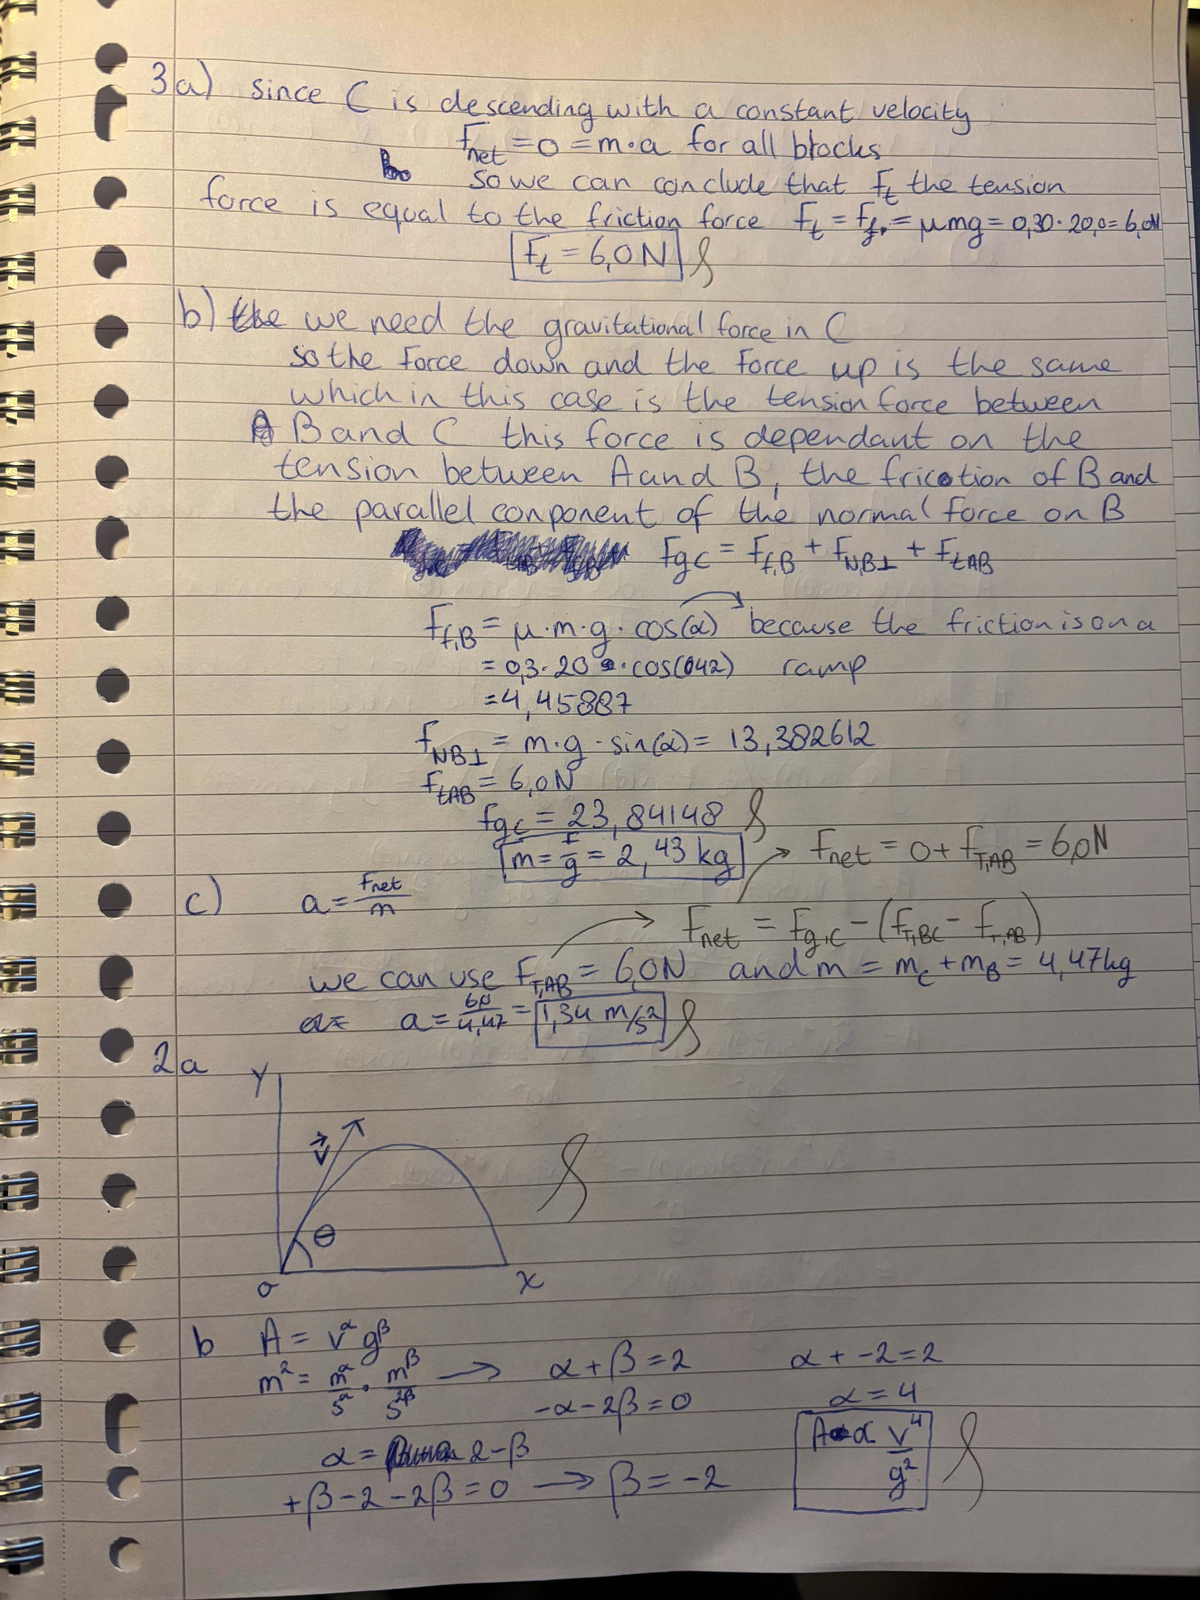 3a) since C is descending with a constant velocity
F_net = 0 = m·a for all blocks
So we can conclude that F_t the tension
force is equal to the friction force F_t = F_fr = μmg = 0,30·20,0 = 6,0N
F_t = 6,0N
b) we need the gravitational force in C
so the force down and the force up is the same
which in this case is the tension force between
B and C this force is dependant on the
tension between A and B, the fricotion of B and
the parallel conponent of the normal force on B
F_gC = F_f,B + F_N,B⊥ + F_tAB
F_f,B = μ·m·g·cos(α) because the friction is on a
= 0,3·20·cos(42) ramp
= 4,45887
F_NB⊥ = m·g·sin(α) = 13,382612
F_tAB = 6,0N
F_gC = 23,84148
m = F/g = 2,43 kg → F_net = 0 + F_T,AB = 6,0N
c) a = F_net/m
F_net = F_g,C − (F_T,BC − F_T,AB)
we can use F_T,AB = 6,0N and m = m_C + m_B = 4,47kg
a = 6N/4,47 = 1,34 m/s²
2a
y
v⃗
θ
o
x
b A = v^α g^β
m² = m^α/s^α · m^β/s^2β → α + β = 2 α + -2 = 2
-α - 2β = 0 α = 4
α = 2 - β A ∝ v⁴/g²
+β - 2 - 2β = 0 → β = -2